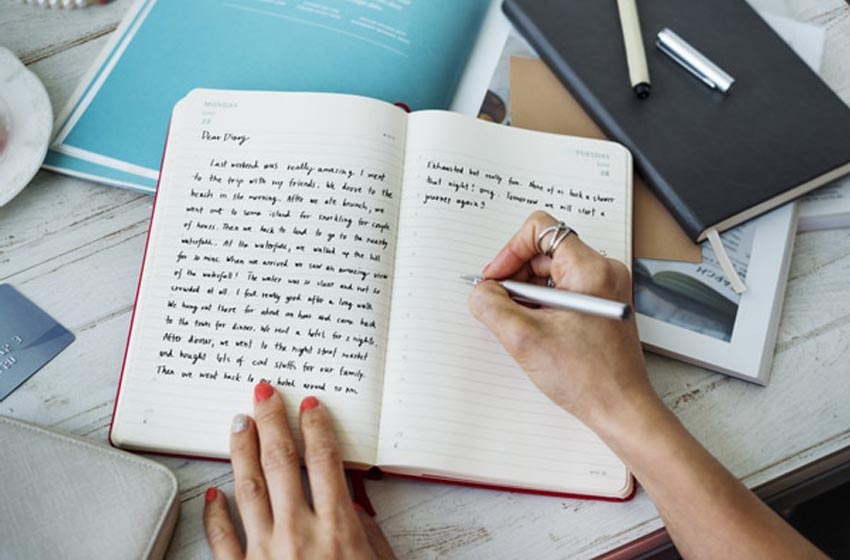 MONDAY
27
Dear Diary
Last weekend was really amazing. I went
to the trip with my friends. We drove to the
beach in the morning. After we ate brunch, we
went out to some island for snorkling for couple
of hours. Then we back to land to go to the nearby
waterfall. At the waterfall, we walked up the hill
for 20 mins. When we arrived we saw an amazing view
of the waterfall! The water was so clear and not so
crowded at all. I feel really good after a long walk.
We hang out there for about an hour and came back
to the town for dinner. We rent a hotel for 2 nights.
After dinner, we went to the night street market
and bought lots of cool stuffs for our family.
Then we went back to our hotel around 10 pm.
TUESDAY
28
Exhausted but really fun. None of us took a shower
that night! omg. Tomorrow we will start a
journey again!